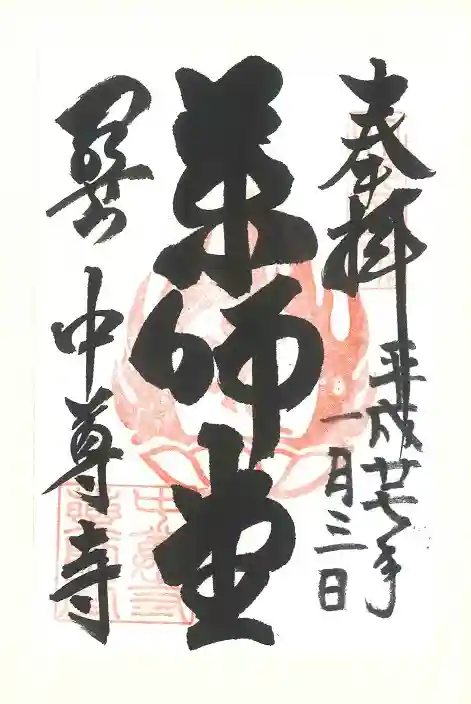 奉拝
平成廿七年
一月三日
薬師堂
關山
中尊寺